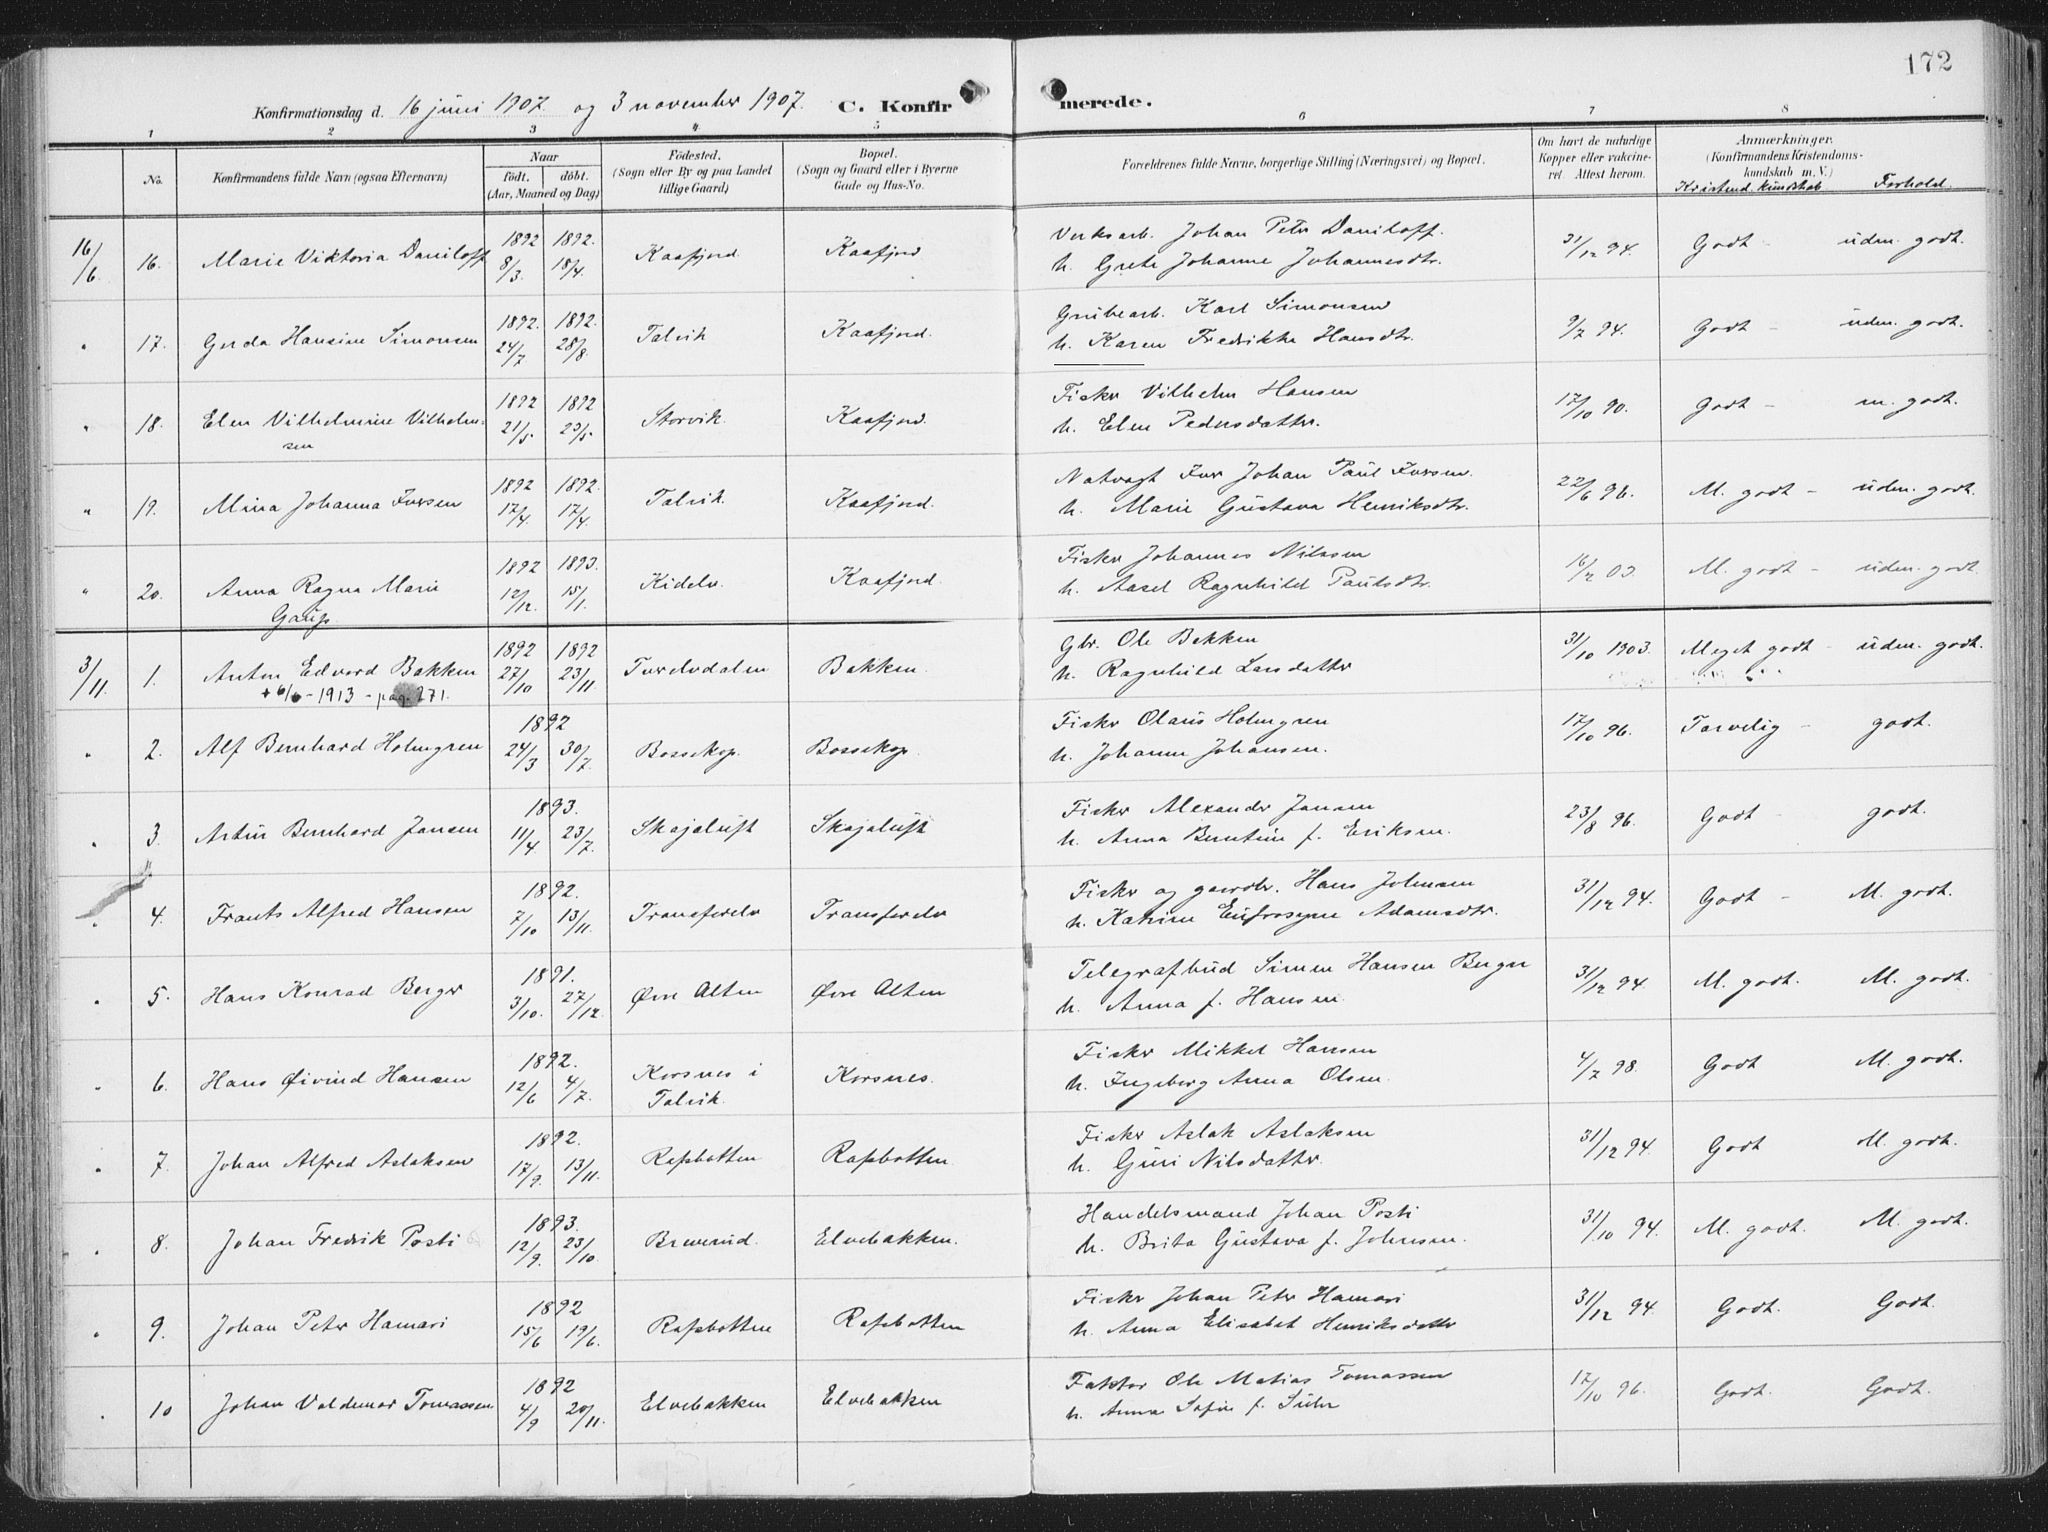 172
Konfirmationsdag d. 16 juni 1907. og 3 november 1907. C. Konfirmerede.
1 2 3 4 5 6 7 8
No. Konfirmandens fulde Navn (ogsaa Efternavn) Naar födt. döbt. (Aar, Maaned og Dag) Födested. (Sogn eller By og paa Landet tillige Gaard) Bopæl. (Sogn og Gaard eller i Byerne Gade og Hus-No. Forældrenes fulde Navne, borgerlige Stilling (Næringsvei) og Bopæl. Om havt de naturlige Kopper eller vakcineret. Attest herom. Anmærkninger. (Konfirmandens Kristendomskundskab m. V.)
Kristend. kundskab Forhold.
16/6 16. Marie Viktoria Daniloff 1892 8/3. 1892. 18/4. Kaafjord Kaafjord Verksarb. Johan Peter Daniloff. 31/12 94. Godt - uden. godt.
h. Grete Johanne Johannesdtr.
" 17. Gerda Hansine Simonsen 1892. 24/7 1892. 28/8. Talvik Kaafjord. Grubearb. Karl Simonsen 9/7 94. Godt - uden. godt.
h. Karen Fredrikke Hansdtr.
" 18. Elen Vilhelmine Vilhelmsen 1892 21/5 1892 23/5 Storvik. Kaafjord. Fisker Vilhelm Hansen 17/10 90. Godt - m. godt.
h. Elen Pedersdatter.
" 19. Mina Johanna Iversen 1892 17/4. 1892. 17/4. Talvik. Kaafjord. Natvagt Iver Johan Paul Iversen. 22/6 96. M. godt - uden. godt.
h. Marie Gustava Henriksdtr.
" 20. Anna Ragna Marie Gaup. 1892 12/12. 1893. 15/1. Kidelv. Kaafjord. Fisker Johannes Nilssen 16/2 03. M. godt - uden. godt.
h. Aasel Ragnhild Paulsdtr.
3/11. 1. Anton Edvard Bakken 1892 27/10 1892 23/11. Tverelvdalen Bakken. Gbr. Ole Bakken 31/10 1903. Meget godt - uden. godt.
+ 6/6 - 1913 - pag. 271. h. Ragnhild Larsdatter
" 2. Alf Bernhard Holmgren 1892 24/3 30/7. Bossekop. Bossekop. Fisker Olaus Holmgren 17/10 96. Tarvelig - godt.
h. Johanne Johansen.
" 3. Artur Bernhard Jansen 1893. 11/4. 23/7. Skajaluft Skajaluft Fisker Alexander Jansen 23/8 96. Godt - godt.
h. Anna Berntine f. Eriksen.
" 4. Frants Alfred Hansen 1892. 7/10 13/11. Transfarelv Transfarelv Fisker og gaardbr. Hans Johnsen 31/12 94. Godt - M. godt.
h. Katrine Eufrosyne Adamsdtr.
" 5. Hans Konrad Berger 1891. 3/10. 27/12. Øvre Alten Øvre Alten Telegrafbud Simon Hansen Berger 31/12 94. M. godt. M. godt.
h. Anna f. Hansen.
" 6. Hans Øivind Hansen 1892. 12/6 4/7. Korsnes i Talvik. Korsnes. Fisker Mikkel Hansen 4/7 98. Godt M. godt.
h. Ingeborg Anna Olsen.
" 7. Johan Alfred Aslaksen 1892. 17/9. 13/11. Rafsbotten Rafsbotten Fisker Aslak Aslaksen 31/12 94. Godt M. godt.
h. Guri Nilsdatter.
" 8. Johan Fredrik Posti 1893. 12/9. 23/10. Breverud. Elvebakken. Handelsmand Johan Posti 31/10 94. M. godt. M. godt.
h. Brita Gustava f. Johnsen.
" 9. Johan Peter Hamari 1892 15/6 19/6. Rafsbotten Rafsbotten Fisker Johan Peter Hamari 31/12 94. Godt. Godt.
h. Anna Elisabet Henriksdatter
" 10 Johan Valdemar Tomassen 1892 4/9 20/11. Elvebakken Elvebakken Faktor Ole Matias Tomassen 17/10 96. Godt. Godt.
h. Anna Sofie f. Suhr